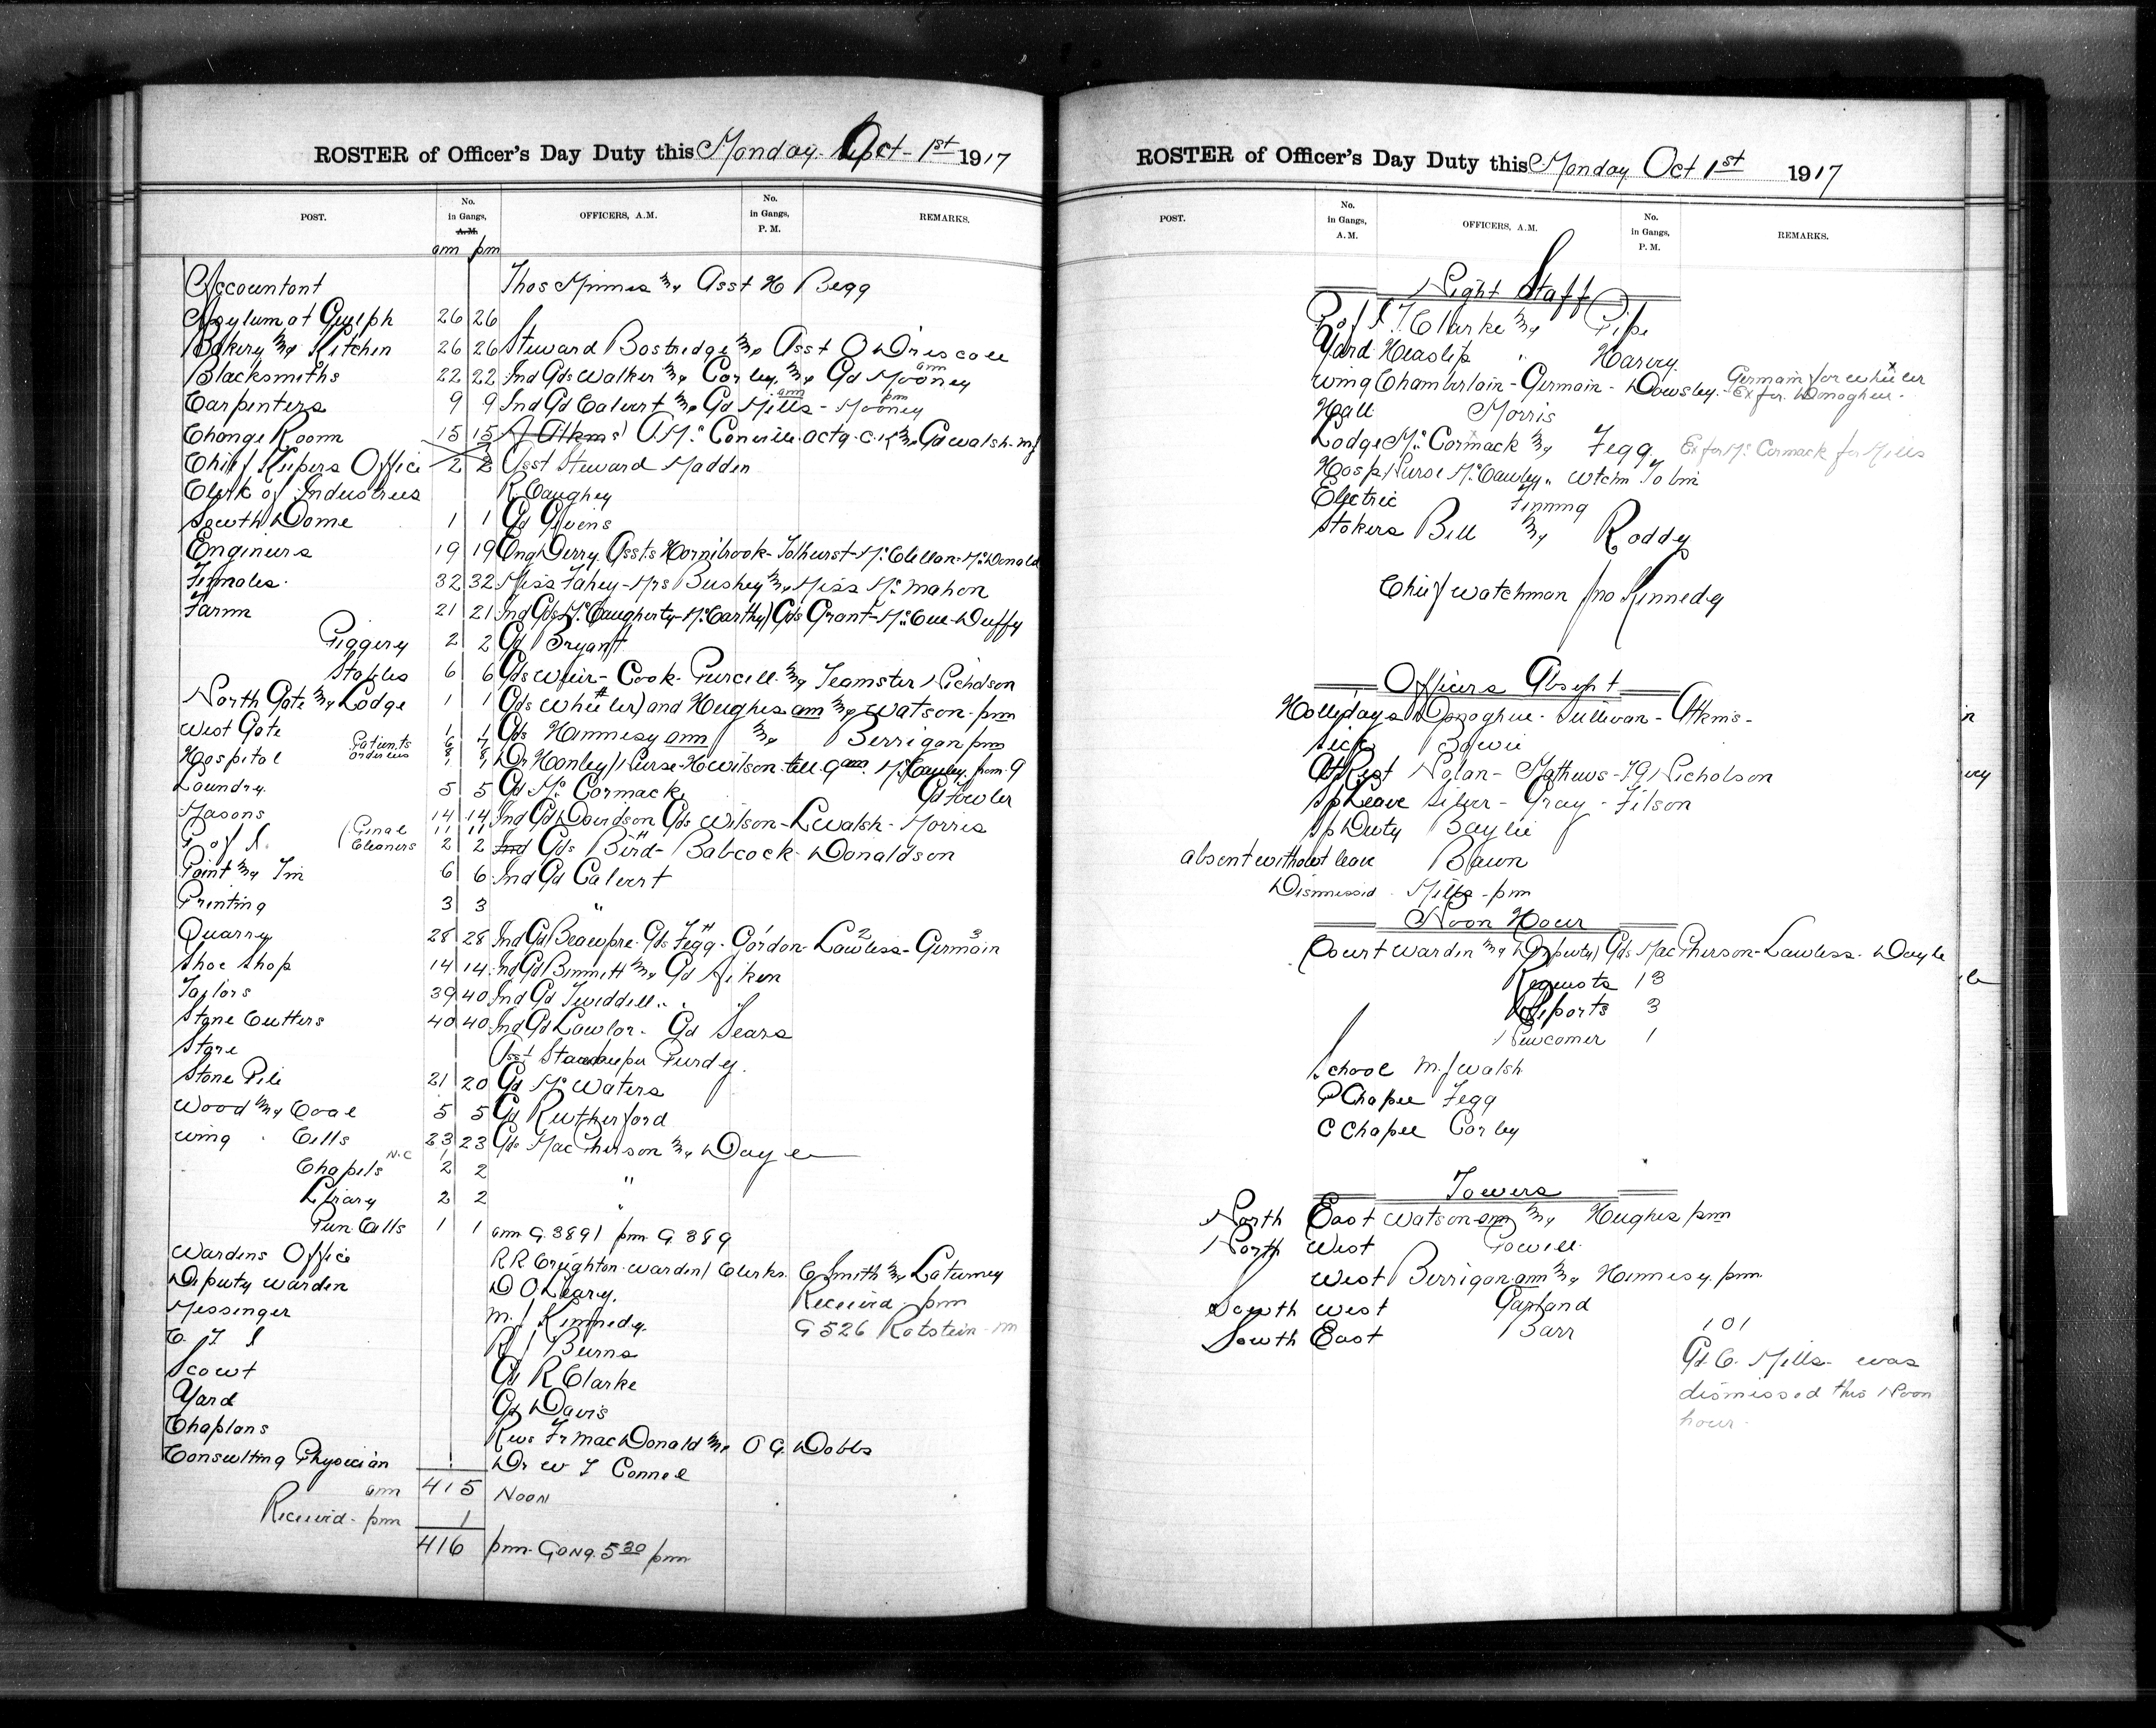 ROSTER of Officer's Day Duty this Monday Oct - 1st 1917
POST. No. in Gangs, A.M. OFFICERS, A.M. No. in Gangs, P. M. REMARKS.
am pm
Accountant Thos Minnes & Asst H Begg
Asylum at Guelph 26 26
Bakery & Kitchen 26 26 Steward Bostridge & Asst O Driscoll
Blacksmiths 22 22 Ind Gds Walker & Corby & Gd Mooney am
Carpenters 9 9 Ind Gd Calvert & Gd Mills am - Mooney pm
Change Room 15 15 A Atkins O. Mc Conville actg. C.K. & Gd Walsh. M J
Chief Keepers Office 2 2 Asst Steward Madden
Clerk of Industries R. Caughey
South Dome 1 1 Gd Givens
Engineers 19 19 Eng Derry. Assts Hornibrook - Tolhurst - McClellan - McDonald
Females. 32 32 Miss Fahey - Mrs Bushey & Miss McMahon
Farm 21 21 Ind Gds McCaugherty - McCarthy Gds Grant - McCue - Duffy
Piggery 2 2 Gd Bryant
Stables 6 6 Gds Weir - Cook - Purcell & Teamster Nicholson
North Gate & Lodge 1 1 Gds Wheeler and Hughes am & Watson - pm
West Gate 1 1 Gds Hennesy am & Berrigan pm
Hospital Patients 6 7
Orderlies 8 8 Dr Hanley Nurse - H Wilson - till 9 am. McCauley from 9
Laundry 5 5 Gd McCormack Gd Fowler
Masons 14 14 Ind Gd Davidson Gds Wilson - L Walsh - Morris
P of I. Penal 11 11
Cleaners 2 2 Ind Gds Bird - Babcock - Donaldson
Paint & Tin 6 6 Ind Gd Calvert
Printing 3 3 "
Quarry 28 28 Ind Gd Beaupre - Gds Fegg - Gordon - Lawless - Germain
Shoe Shop 14 14 Ind Gd Bennett & Gd Aiken
Taylors 39 40 Ind Gd Tweddell " "
Stone Cutters 40 40 Ind Gd Lawlor - Gd Sears
Store Asst Storekeeper Purdy.
Stone Pile 21 20 Gd McWaters
Wood & Coal 5 5 Gd Rutherford
Wing . Cells 23 23 Gds MacPherson & Doyle
Chapels N.C 2 2 "
Library 2 2 "
Pun. Cells 1 1 am G 389 1 pm G 389
Wardens Office R R Creighton - Warden Clerks. C Smith & Laturney
Deputy Warden D O'Leary. Received - pm
Messenger M. J Kennedy. G 526 Rotstein - m
C. I I R J Burns
Scout Gd R Clarke
Yard Gd Davis
Chaplans Revs Fr MacDonald & O G. Dobbs
Consulting Physician Dr W T Connel
am 415 Noon
Received - pm 1
416 pm - Gong. 5 30 pm
ROSTER of Officer's Day Duty this Monday Oct 1st 1917
POST. No. in Gangs, A.M. OFFICERS, A.M. No. in Gangs, P. M. REMARKS.
Night Staff
P of I. T. Clarke & Pipe
Yard Heaslip " Harvey.
Wing Chamberlain - Germain - Dowsley. Germain for Wheeler
Ex for Donoghue.
Hall Morris
Lodge McCormack & Fegg. Ex for McCormack for Mills
Hosp Nurse McCauley " Wtchm Tobin
Electric Finning
Stokers Bell & Roddy
Chief Watchman Jno Kennedy
Officers Absent
Hollidays Donoghue - Sullivan - Atkins -
Sick Bowie
At Rest Nolan - Mathews - Nicholson
Sp Leave Silver - Gray - Filson
Sp Duty Baylie
absent without leave Bawn
Dismissed. Mills - pm
Noon Hour
Court Warden & Deputy Gds MacPherson - Lawless - Doyle
Requests 13
Reports 3
Newcomer 1
School M. J Walsh
P Chapel Fegg
C Chapel Corby
Towers
North East Watson am & Hughes pm
North West Powell
West Berrigan am & Hennesy pm
South West Garland
South East Barr
101
Gd C. Mills - was
dismissed this Noon
hour -